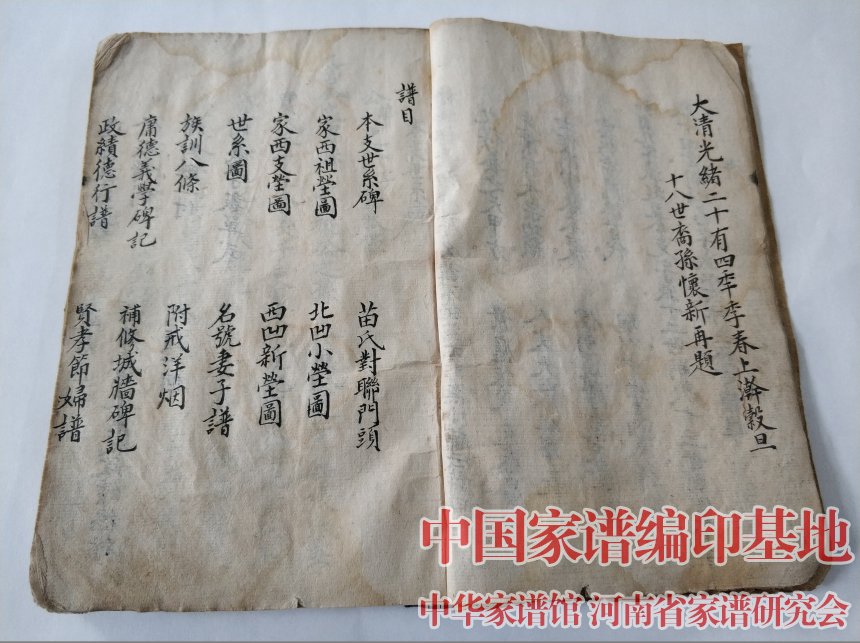 大清光緒二十有四年季春上澣穀旦
十八世裔孫懷新再題
譜目
本支世系碑
苗氏對聯門頭
家西祖塋圖
北凹小塋圖
家西支塋圖
西凹新塋圖
世系圖
名號妻子譜
族訓八條
附戒洋烟
庸德義學碑記
補修城牆碑記
政績德行譜
賢孝節婦譜
中国家谱编印基地
中华家谱馆 河南省家谱研究会